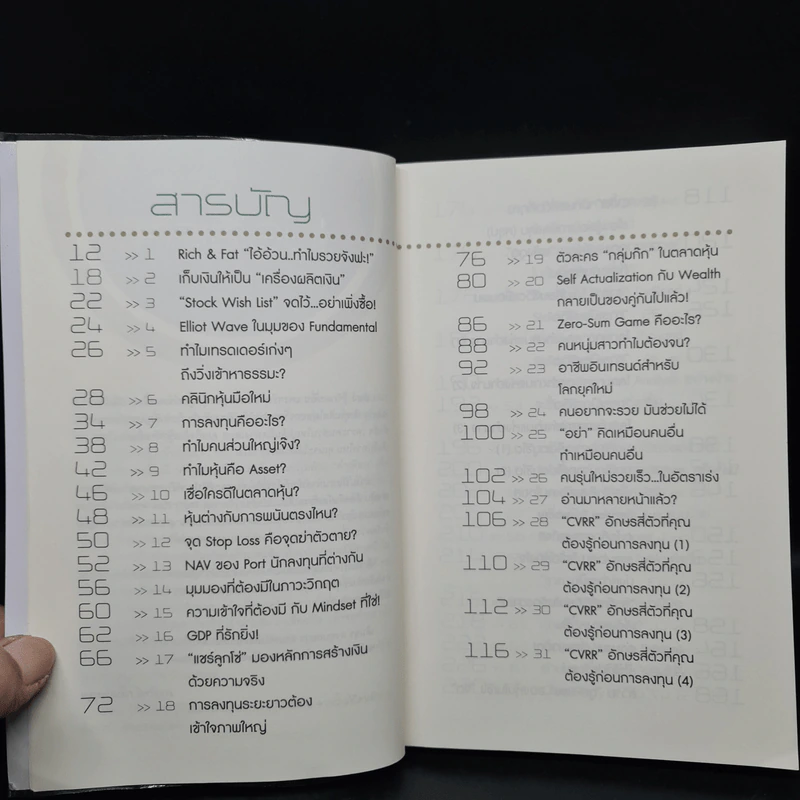 สารบัญ
12 >> 1 Rich & Fat “ไอ้อ้วน..ทำไมรวยจังฟะ!”
18 >> 2 เก็บเงินให้เป็น “เครื่องผลิตเงิน”
22 >> 3 “Stock Wish List” จดไว้...อย่าเพิ่งซื้อ!
24 >> 4 Elliot Wave ในมุมของ Fundamental
26 >> 5 ทำไมเทรดเดอร์เก่งๆ
ถึงวิ่งเข้าหาธรรมะ?
28 >> 6 คลินิกหุ้นมือใหม่
34 >> 7 การลงทุนคืออะไร?
38 >> 8 ทำไมคนส่วนใหญ่เจ๊ง?
42 >> 9 ทำไมหุ้นคือ Asset?
46 >> 10 เชื่อใครดีในตลาดหุ้น?
48 >> 11 หุ้นต่างกับการพนันตรงไหน?
50 >> 12 จุด Stop Loss คือจุดฆ่าตัวตาย?
52 >> 13 NAV ของ Port นักลงทุนที่ต่างกัน
56 >> 14 มุมมองที่ต้องมีในภาวะวิกฤต
60 >> 15 ความเข้าใจที่ต้องมี กับ Mindset ที่ใช่!
62 >> 16 GDP ที่รักยิ่ง!
66 >> 17 “แชร์ลูกโซ่” มองหลักการสร้างเงิน
ด้วยความจริง
72 >> 18 การลงทุนระยะยาวต้อง
เข้าใจภาพใหญ่
76 >> 19 ตัวละคร “กลุ่มก๊ก” ในตลาดหุ้น
80 >> 20 Self Actualization กับ Wealth
กลายเป็นของคู่กันไปแล้ว!
86 >> 21 Zero-Sum Game คืออะไร?
88 >> 22 คนหนุ่มสาวทำไมต้องจน?
92 >> 23 อาชีพอินเทรนด์สำหรับ
โลกยุคใหม่
98 >> 24 คนอยากจะรวย มันช่วยไม่ได้
100 >> 25 “อย่า” คิดเหมือนคนอื่น
ทำเหมือนคนอื่น
102 >> 26 คนรุ่นใหม่รวยเร็ว...ในอัตราเร่ง
104 >> 27 อ่านมาหลายหน้าแล้ว?
106 >> 28 “CVRR” อักษรสี่ตัวที่คุณ
ต้องรู้ก่อนการลงทุน (1)
110 >> 29 “CVRR” อักษรสี่ตัวที่คุณ
ต้องรู้ก่อนการลงทุน (2)
112 >> 30 “CVRR” อักษรสี่ตัวที่คุณ
ต้องรู้ก่อนการลงทุน (3)
116 >> 31 “CVRR” อักษรสี่ตัวที่คุณ
ต้องรู้ก่อนการลงทุน (4)